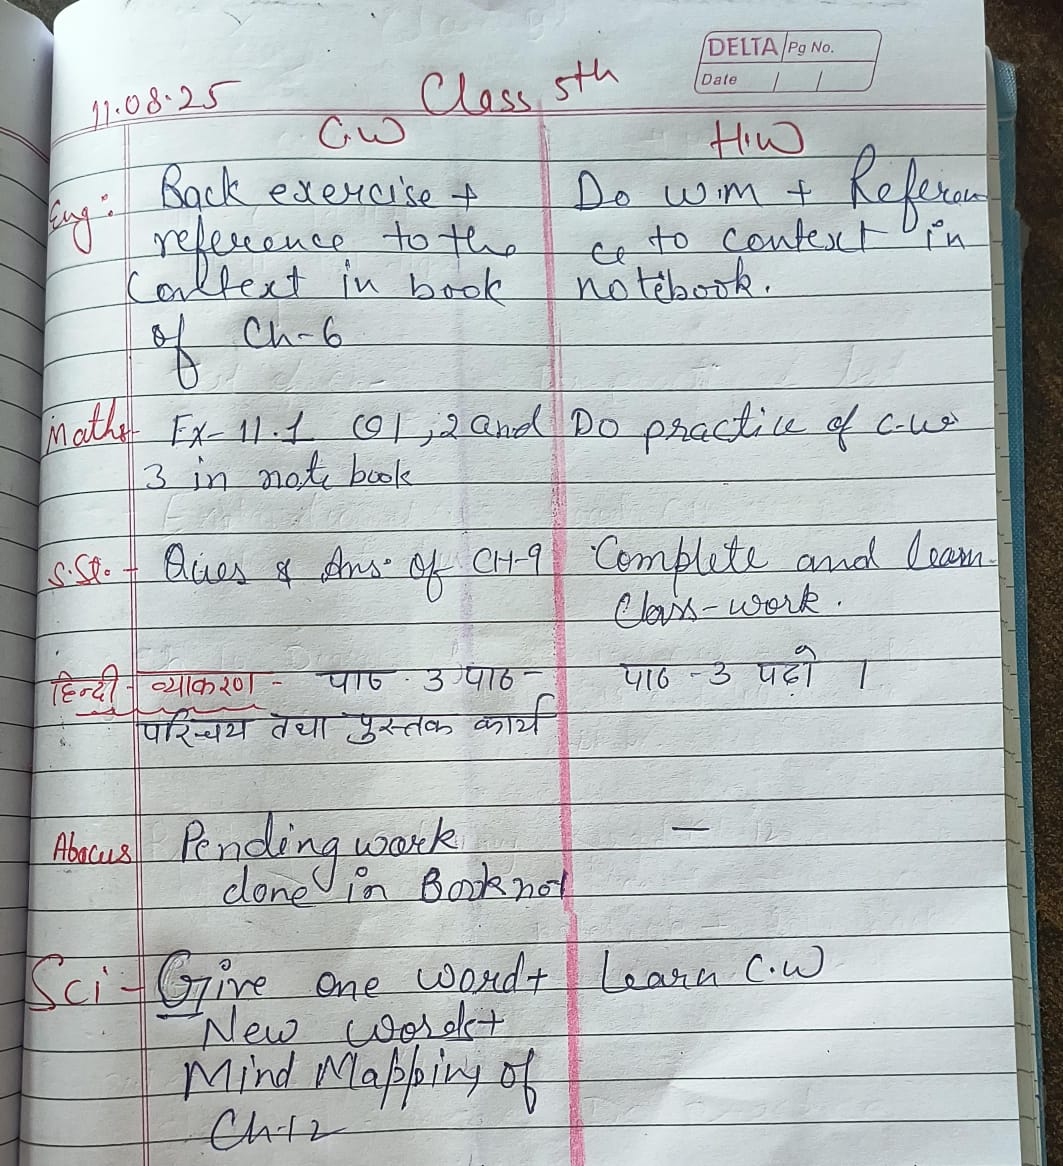 DELTA Pg No.
Date / /
11.08.25 Class 5th
C.W H.W
Eng: Back exercise + Do W.M + Referen
reference to the ce to context in
Context in book notebook.
of Ch-6
Maths- Ex-11.1 Q1,2 and Do practice of c.w
3 in note book
S.St. - Ques & Ans. Of CH-9 Complete and learn
Class-work.
हिन्दी - व्याकरण - पाठ - 3 पाठ - पाठ -3 पढ़ो ।
परिचय तथा पुस्तक कार्य
Abacus Pending work —
done in Book not
Sci - Give one word+ Learn C.W
New words+
Mind Mapping of
Ch-12